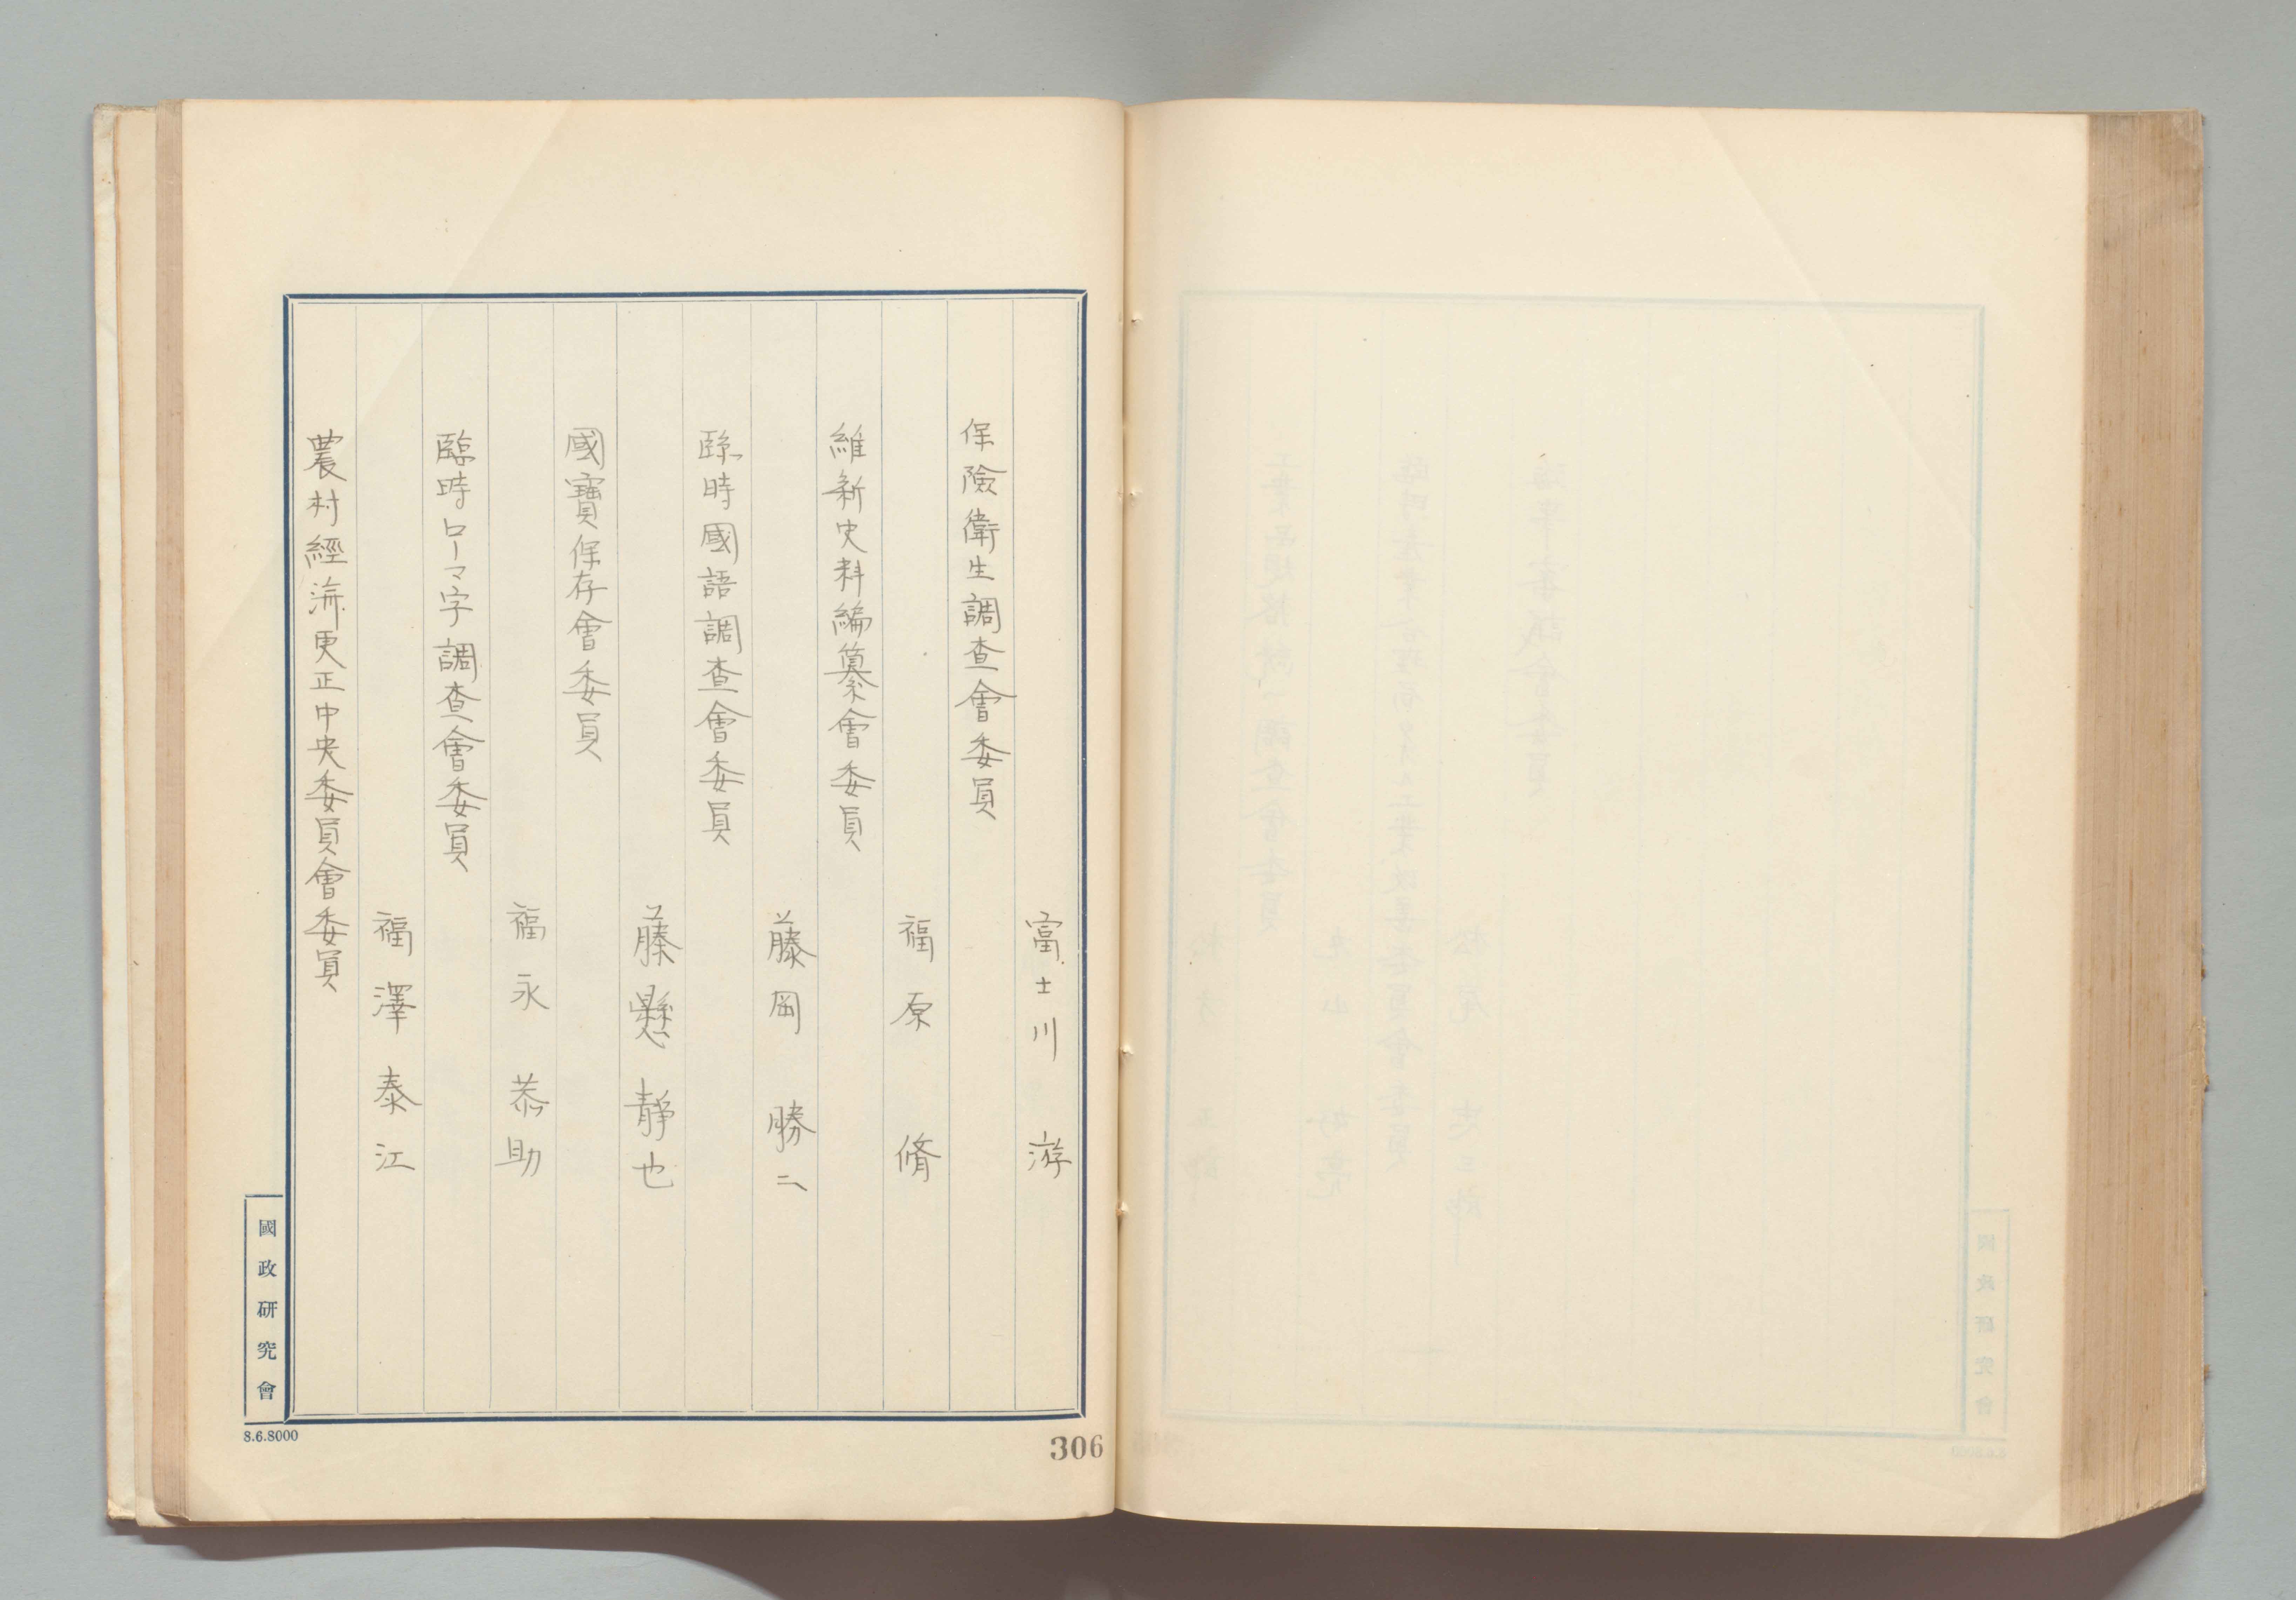 富士川游
保險衛生調査會委員
福原脩
維新史料編纂會委員
藤岡勝二
臨時國語調査會委員
藤懸靜也
國寶保存會委員
福永恭助
臨時ローマ字調査會委員
福澤泰江
農村經済更正中央委員會委員
國政研究會
8.6.8000
306